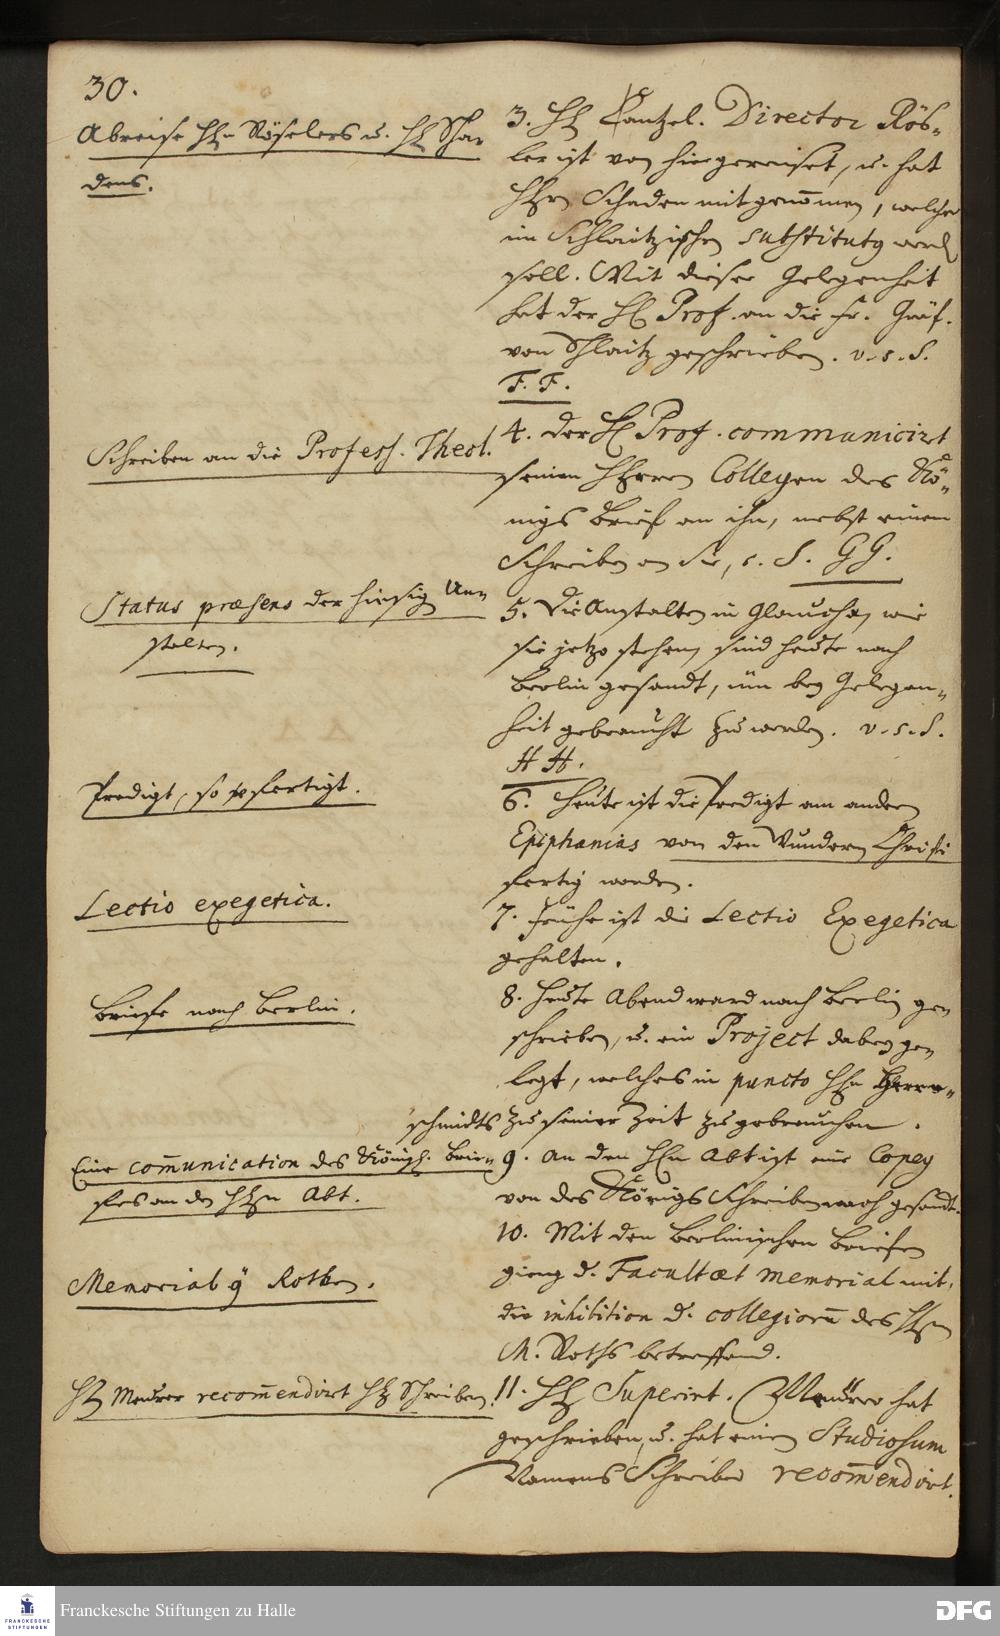 30.
Abreise HEn Röselers u. HE Scha-
dens.
3. HE Cantzel. Director Rös-
ler ist von hier gereiset, u. hat
HErn Schaden mitgenom̄en, welcher
im Schlaitzischen substitutus werdē
soll. Mit dieser Gelegenheit
hat der HE Prof. an die Fr. Gräf.
von Schlaitz geschrieben. v. s. S.
F. F.
Schreiben an die Profess. Theol.
4. Der HE Prof. communicirt
seinen HErren Collegen des Kö-
nigs Brief an ihn, nebst einem
Schreiben an Sie, s. S. GG.
Status præsens der hiesig An-
stalten.
5. Die Anstalten in Glaucha, wie
sie jetzo stehen, sind heute nach
Berlin gesandt, üm bey Gelegen-
heit gebraucht zu werden. v. s. S.
HH.
Predigt, so gefertigt.
6. Heute ist die Predigt am andern
Epiphanias von den Wundern Christi
fertig worden.
Lectio exegetica.
7. Frühe ist die Lectio Exegetica
gehalten.
Briefe nach Berlin.
8. Heute Abend ward nach Berlin ge-
schrieben, u. ein Project dabey ge-
legt, welches in puncto HEn Herrn-
schmidts zu seiner Zeit zu gebrauchen.
Eine com̄unication des Königl. Brie-
fes an den HEn Abt.
9. An den HEn Abt ist eine Copey
von des Königs Schreiben nach gesandt.
10. Mit den Berlinischen Briefen
gieng d. Facultæt Memorial mit,
die inhibition d. collegiorū des HEn
M. Roths betreffend.
Memorial Rothen.
HE Meurer recom̄endirt HE Schreiben.
11. HE Superint. Meurer hat
geschrieben, u. hat einen Studiosum
Namens Schreiber recom̄endirt.
Franckesche Stiftungen zu Halle
FRANCKESCHE
STIFTUNGEN
DFG